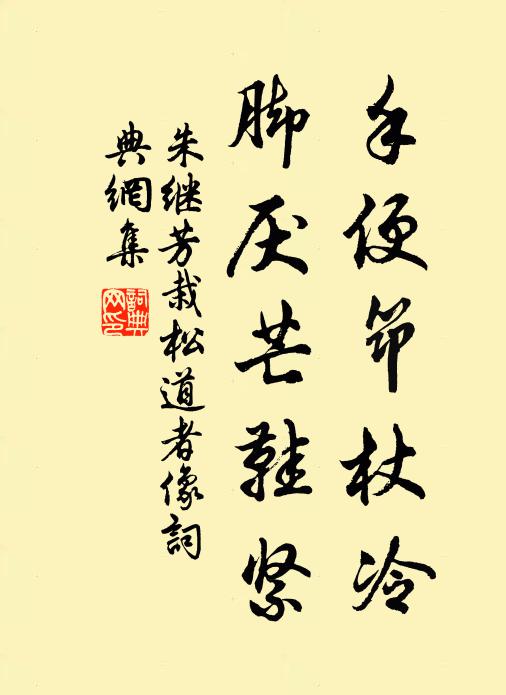 手便笻杖冷
脚厌芒鞋紧
朱继芳栽松道者像詞
典網集
詞典
网印